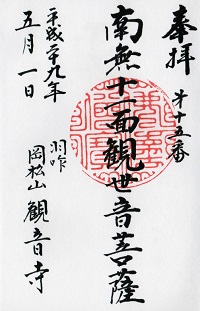 奉拝
第十五番
南無十一面観世音菩薩
平成二十九年
五月一日
羽咋
岡松山 観音寺